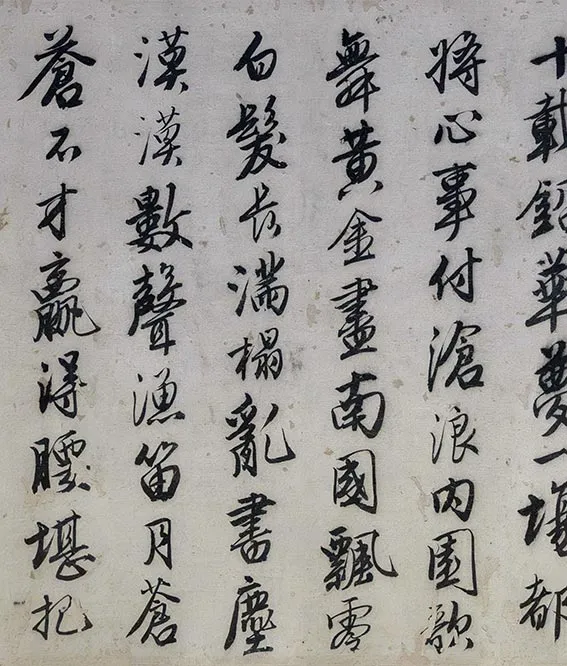 十載鉛華夢一場都
將心事付滄浪内園歌
舞黃金盡南國飄零
白髮長滿榻亂書塵
漠漠數聲漁笛月蒼
蒼不才贏得腰堪把